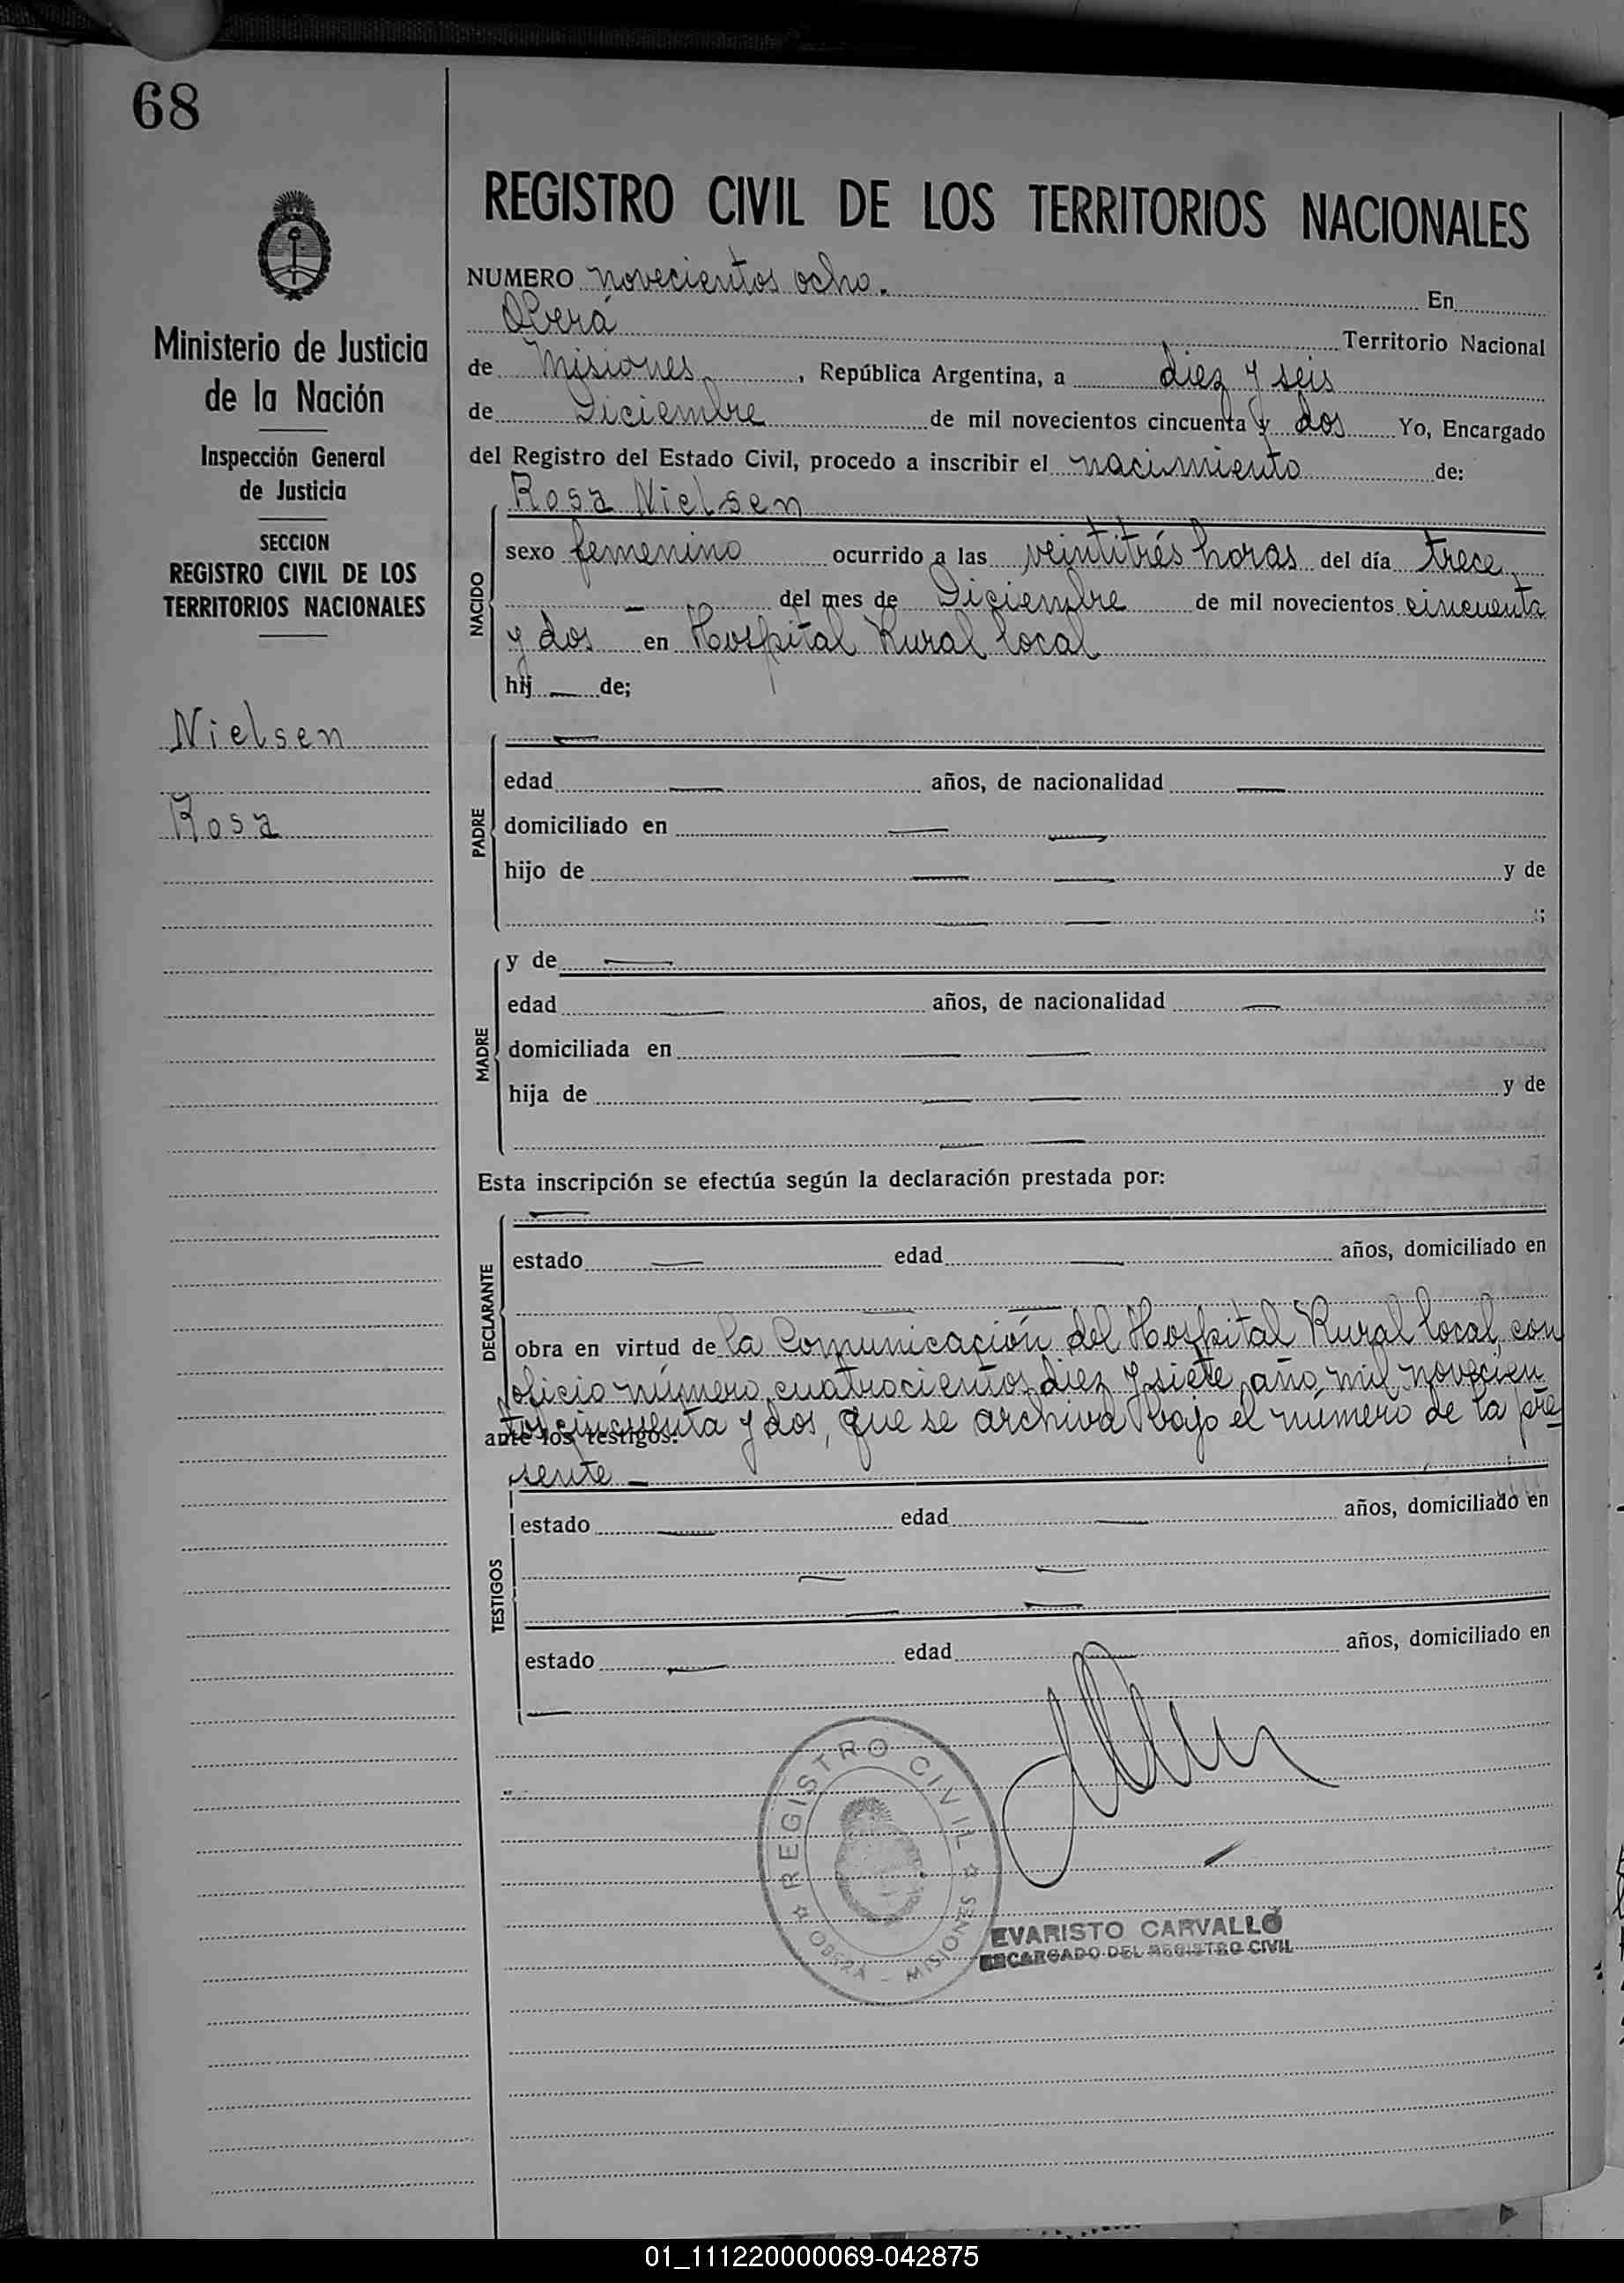 68
REGISTRO CIVIL DE LOS TERRITORIOS NACIONALES
NUMERO novecientos ocho. En
Oberá Territorio Nacional
de Misiones, República Argentina, a diez y seis
de Diciembre de mil novecientos cincuenta y dos Yo, Encargado
del Registro del Estado Civil, procedo a inscribir el nacimiento de:
Rosa Nielsen
NACIDO
sexo femenino ocurrido a las veintitrés horas del día trece
— del mes de Diciembre de mil novecientos cincuenta
y dos en Hospital Rural local
hij — de;
Ministerio de Justicia
de la Nación
Inspección General
de Justicia
SECCION
REGISTRO CIVIL DE LOS
TERRITORIOS NACIONALES
Nielsen
Rosa
PADRE
—
edad — años, de nacionalidad —
domiciliado en — —
hijo de — — y de
— — ;
MADRE
y de —
edad — años, de nacionalidad —
domiciliada en — —
hija de — — y de
— —
Esta inscripción se efectúa según la declaración prestada por:
DECLARANTE
—
estado — edad — años, domiciliado en
— —
obra en virtud de la Comunicación del Hospital Rural local, con
oficio número cuatrocientos diez y siete año mil novecien
tos cincuenta y dos, que se archiva bajo el número de la pre-
ante los testigos:
sente —
TESTIGOS
estado — edad — años, domiciliado en
— —
— —
estado — edad — años, domiciliado en
—
REGISTRO CIVIL
OBERA - MISIONES
EVARISTO CARVALLO
ENCARGADO DEL REGISTRO CIVIL
01_111220000069-042875